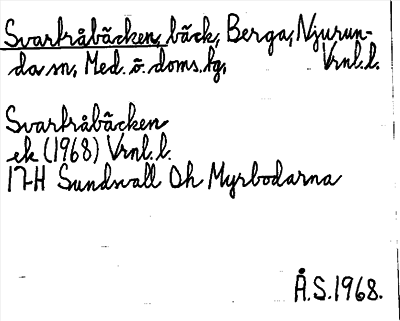 Svartråbäcken, bäck, Berga, Njurun-
da sn, Med. ö. doms.lg, Vrnl.l.
Svartråbäcken
ek (1968) Vrnl.l.
17H Sundsvall Oh Myrbodarna
Å.S.1968.